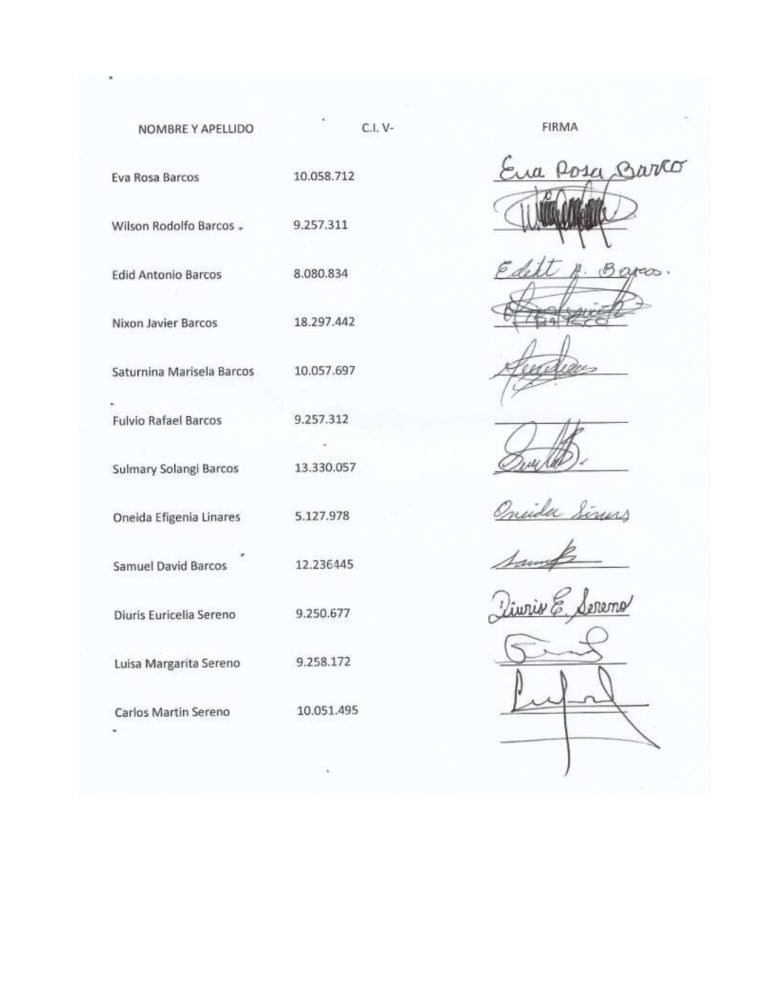 NOMBRE Y APELLIDO C.I. V- FIRMA
Eva Rosa Barcos 10.058.712 Eva Rosa Barco
Wilson Rodolfo Barcos 9.257.311
Edid Antonio Barcos 8.080.834 Edilt A. Barcos.
Nixon Javier Barcos 18.297.442
Saturnina Marisela Barcos 10.057.697
Fulvio Rafael Barcos 9.257.312
Sulmary Solangi Barcos 13.330.057
Oneida Efigenia Linares 5.127.978 Oneida
Samuel David Barcos 12.236445
Diuris Euricelia Sereno 9.250.677 Diuris E. Sereno
Luisa Margarita Sereno 9.258.172
Carlos Martin Sereno 10.051.495